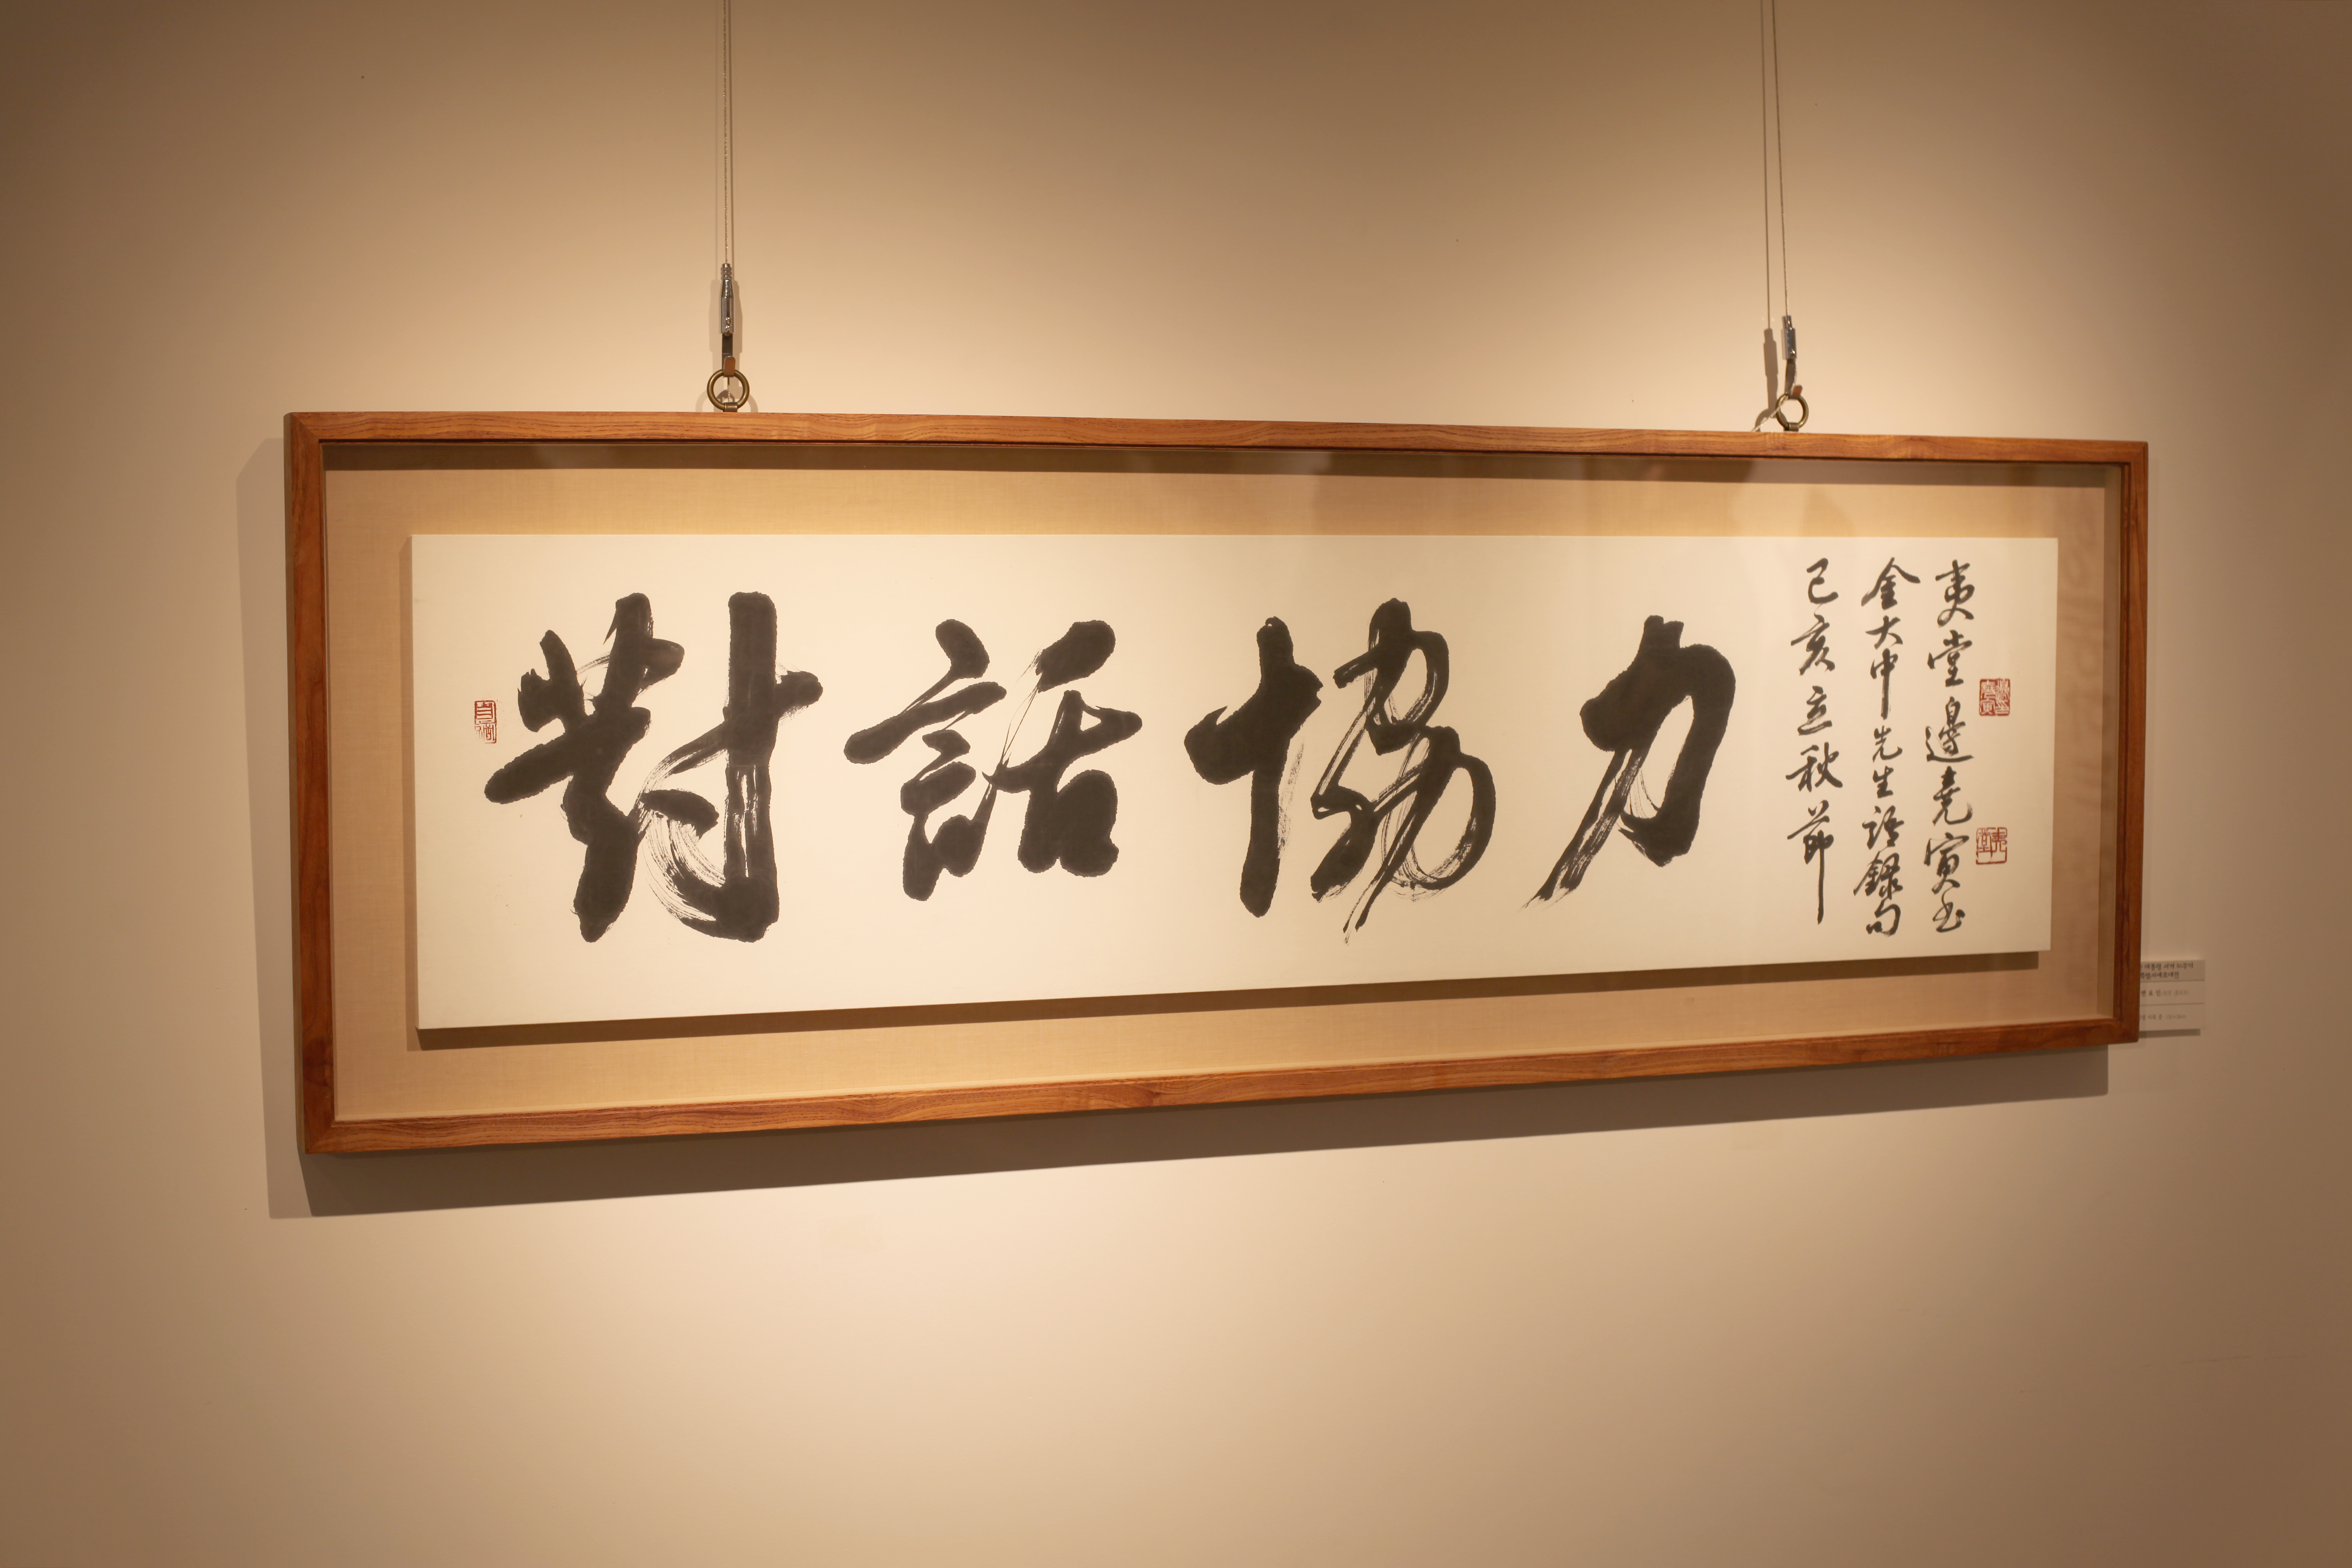 對話協力
己亥立秋節
金大中先生語錄句
夷堂邊堯寅書